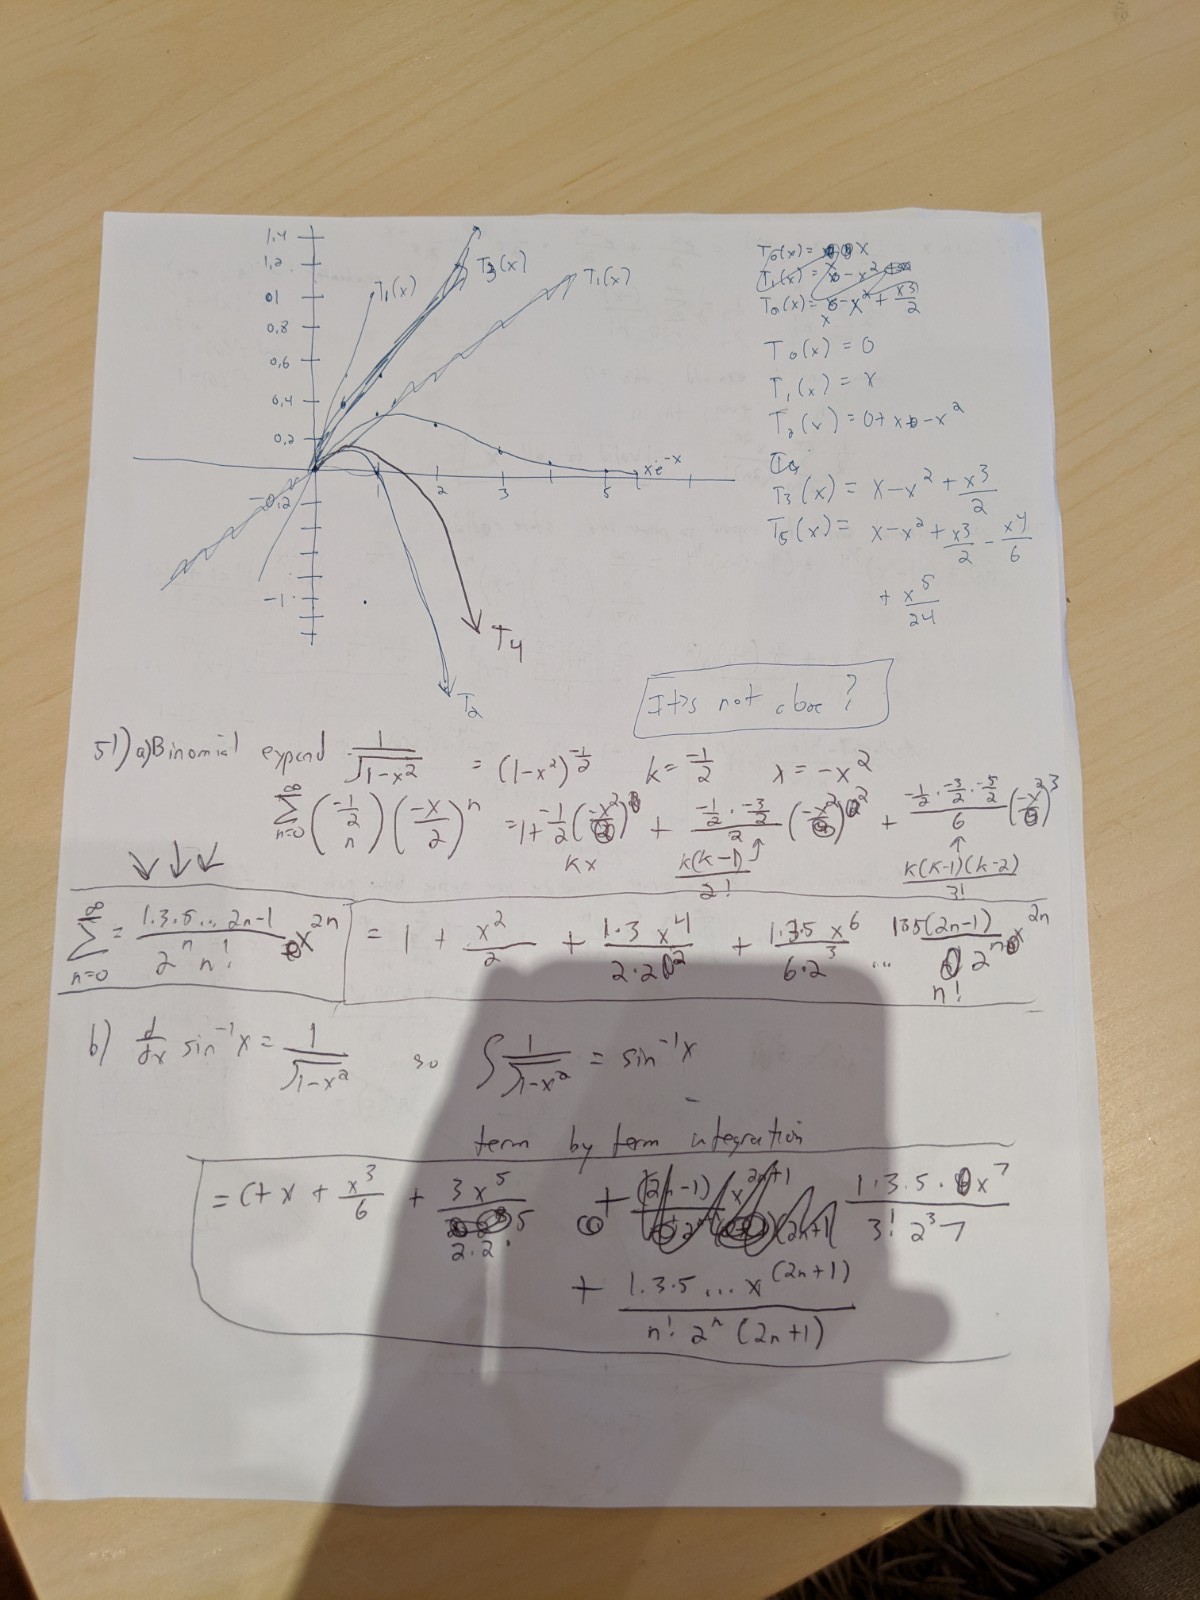 1.4
1.2
1
0.8
0.6
0.4
0.2
-0.2
-1
1 2 3 5
T₁(x)
T₃(x)
T₁(x)
xe^-x
T₄
T₂
T₀(x) = x
T₁(x) = x - x²
T₀(x) = x - x² + x³/2
T₀(x) = 0
T₁(x) = x
T₂(x) = 0 + x - x²
T₃(x) = x - x² + x³/2
T₅(x) = x - x² + x³/2 - x⁴/6
+ x⁵/24
It's not close?
51) a) Binomial expand 1/√(1-x²) = (1-x²)^(-1/2) k = -1/2 x = -x²
∑ n=0 ∞ (-1/2 n) (-x/2)^n = 1 + -1/2 (-x²) + (-1/2 · -3/2)/2 (-x²)² + (-1/2 · -3/2 · -5/2)/6 (-x²)³
kx k(k-1)/2! k(k-1)(k-2)/3!
∑ n=0 ∞ = (1·3·5... 2n-1)/(2^n n!) x^2n = 1 + x²/2 + (1·3 x⁴)/(2·2²) + (1·3·5 x⁶)/(6·2³) ... 135(2n-1)/(n! 2^n) x^2n
b) d/dx sin⁻¹x = 1/√(1-x²) so ∫ 1/√(1-x²) = sin⁻¹x
term by term integration
= C + x + x³/6 + 3x⁵/(2·2²·5) + (1·3·5·x⁷)/(3! 2³ 7)
+ (1·3·5 ... x^(2n+1))/(n! 2^n (2n+1))